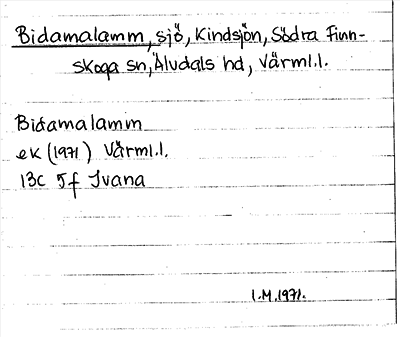 Bidamalamm, sjö, Kindsjön, Södra Finn-
skoga sn, Älvdals hd, Värml.l.
Bidamalamm
ek (1971) Värml.l.
13C 5f Ivana
I.M.1971.